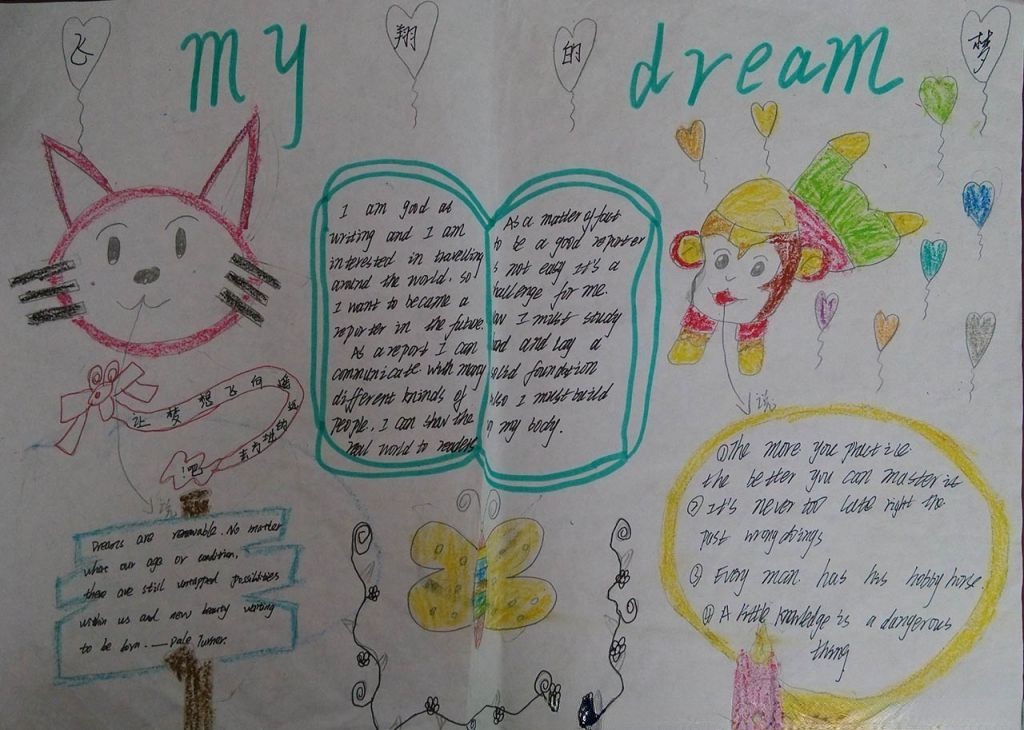 飞 翔 的 梦
my dream
I am good at
writing and I am
interested in travelling
around the world. so
I want to became a
reporter in the future.
As a report I can
communicate with many
different kninds of
people, I can show the
real world to readers
As a matter of fact
to be a good reporter
s not easy It's a
hallenge for me.
ow I must study
and lay a
solid foundation
Also I must build
my body.
让 梦 想 飞 向 遥
远
的
吧!
Dreams are renewable. No matter
what our age or condition,
there are still untapped possibilities
within us and new beauty waiting
to be born. —Dale Turner.
说
说
①The more you practise
the better you can master it
② It's never too late right the
past wrongdoings
③ Every man has his hobbyhorse
④ A little knowledge is a dangerous
thing